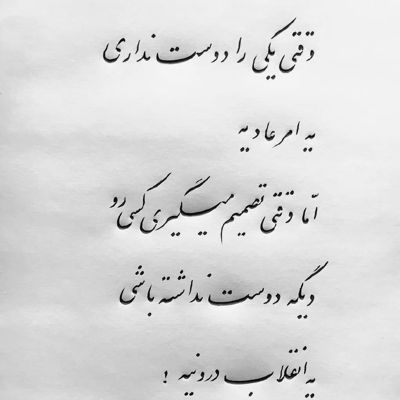 وقتی یکی را دوست نداری
یه امر عادیه
امّا وقتی تصمیم میگیری کسی رو
دیگه دوست نداشته باشی
یه انقلاب درونیه !